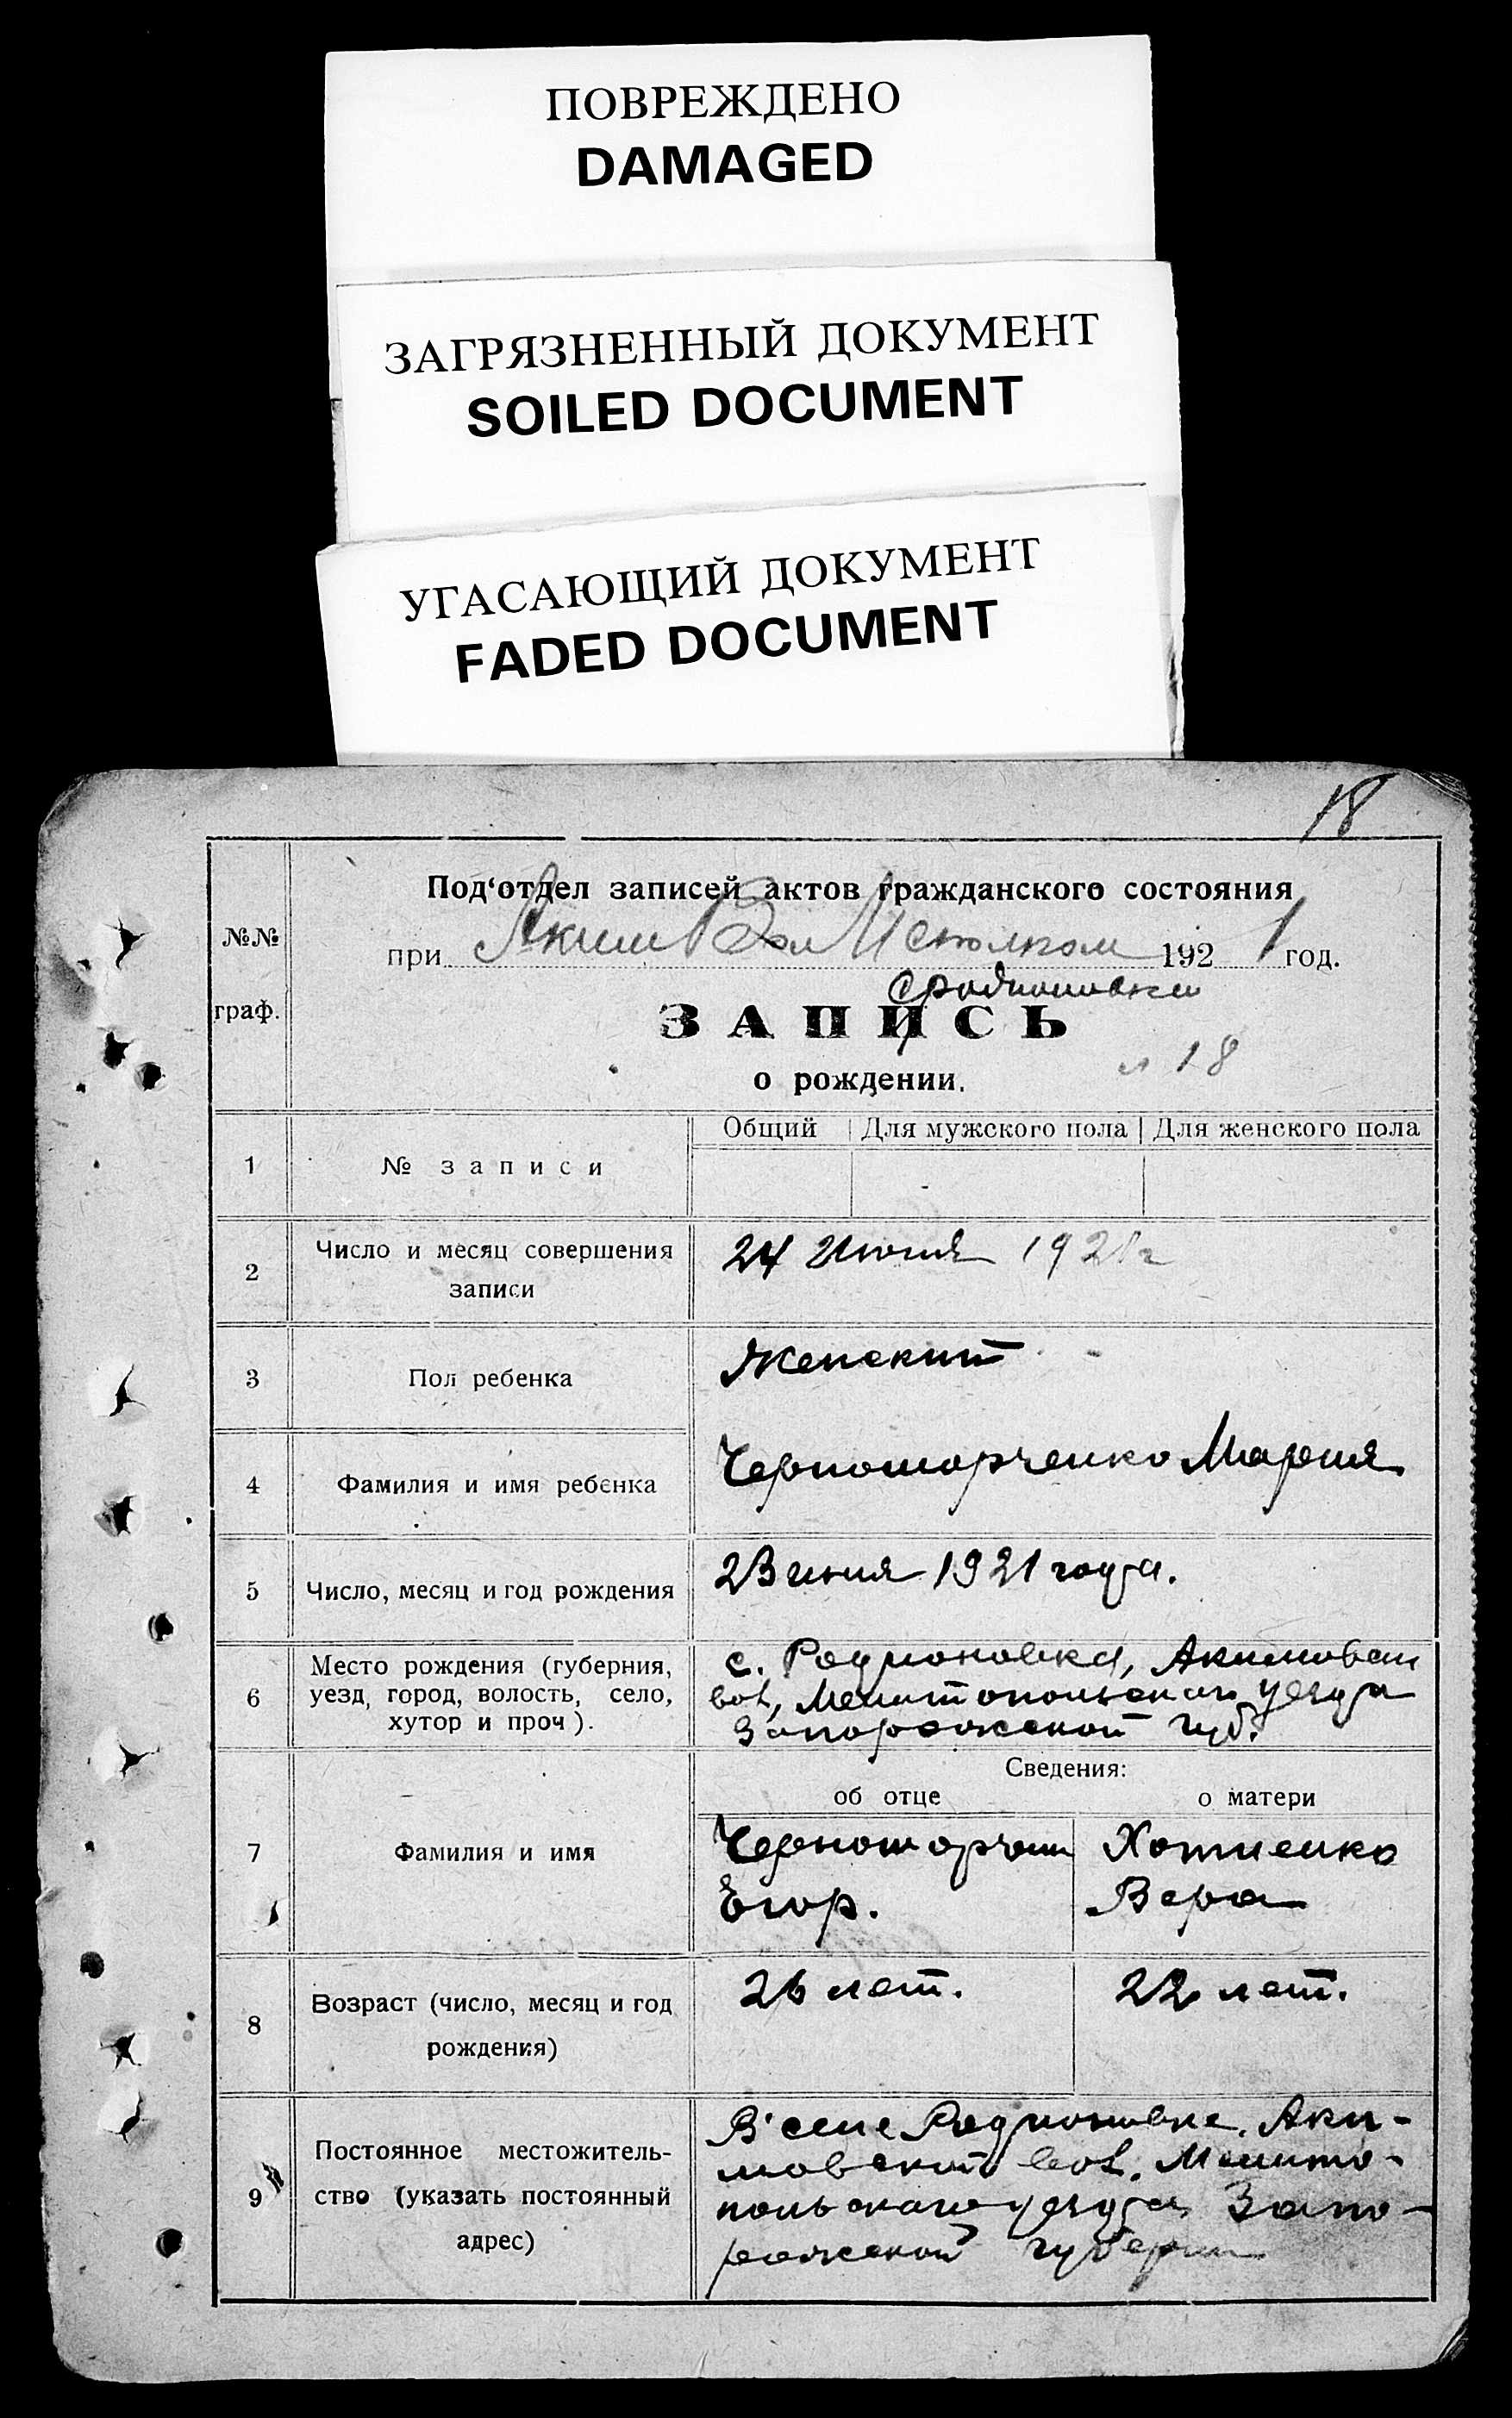 ПОВРЕЖДЕНО
DAMAGED
ЗАГРЯЗНЕННЫЙ ДОКУМЕНТ
SOILED DOCUMENT
УГАСАЮЩИЙ ДОКУМЕНТ
FADED DOCUMENT
18
№№ граф.
Под‘отдел записей актов гражданского состояния
при Аким Вол Исполком 1921 год.
с Родионовки
ЗАПИСЬ
о рождении.
л 18
Общий Для мужского пола Для женского пола
1 № записи
2 Число и месяц совершения записи
24 Июня 1921г
3 Пол ребенка
Женский
4 Фамилия и имя ребенка
Черноморченко Мария
5 Число, месяц и год рождения
23 июня 1921 года.
6 Место рождения (губерния,
уезд, город, волость, село,
хутор и проч).
с. Родионовка, Акимовской
вол, Мелитопольского уезда
Запорожской губ.
Сведения:
об отце о матери
7 Фамилия и имя
Черноморченко Хотиенко
Егор. Вера
8 Возраст (число, месяц и год
рождения)
26 лет. 22 лет.
9 Постоянное местожитель-
ство (указать постоянный
адрес)
В селе Родионовке, Аки-
мовской вол. Мелито-
польского уезда Запо-
рожской губернии